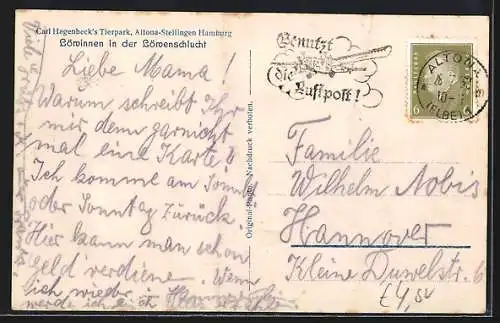 Carl Hegenbeck's Tierpark, Altona-Stellingen Hamburg
Löwinnen in der Löwenschlucht
Liebe Mama!
Warum schreibt Ihr
mir denn garnicht
mal eine Karte?
Ich komme am
oder Sonntag zurück.
Hier kann man schon
Geld verdiene. Wenn
ich wieder in
werde ich
Original-Photo. Nachdruck verboten.
Benutzt
die
Luftpost!
ALTONA
10-
(ELBE)
6
6
Familie
Wilhelm Nobis
Hannover
Kleine Duwelstr. 6
£4,50